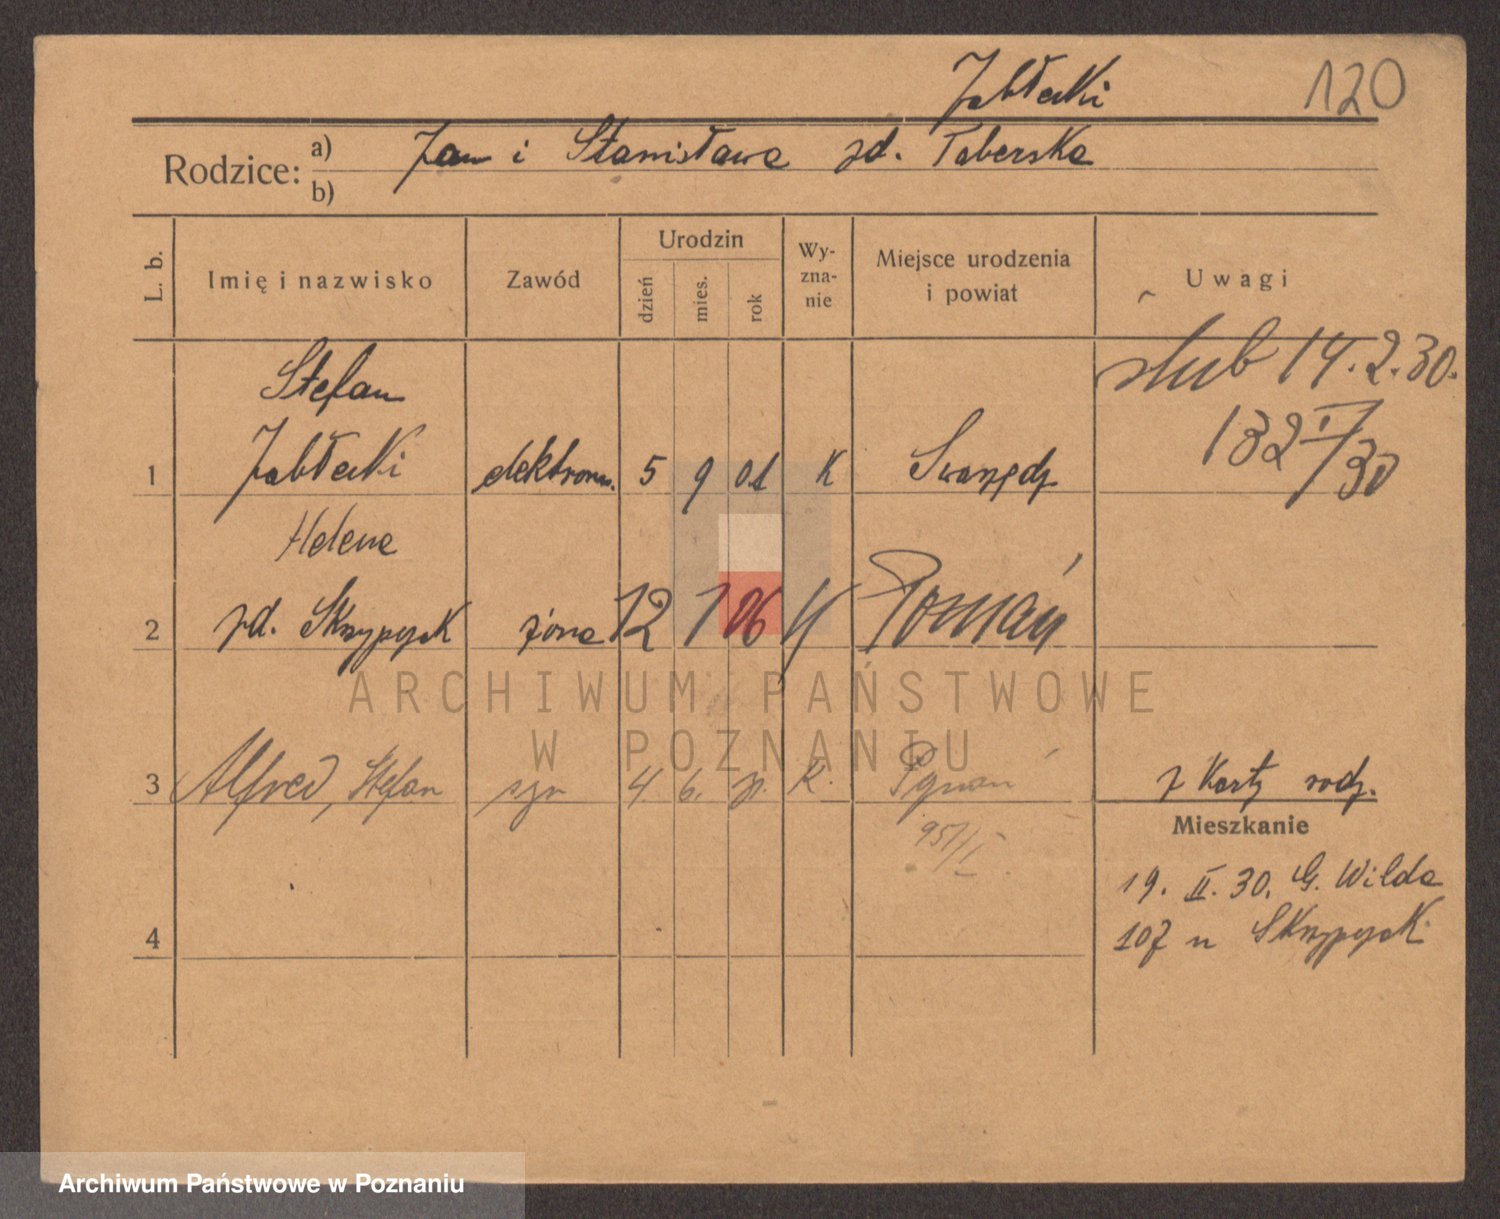 120
Jabłecki
Rodzice: a) Jan i Stanisława zd. Taberska
b)
L. b.
Imię i nazwisko
Zawód
Urodzin
dzień
mies.
rok
Wy-
zna-
nie
Miejsce urodzenia
i powiat
Uwagi
ślub 14.2.30.
132 I/30
Stefan
1 Jabłecki elektrom. 5 9 01 K Swarzędz
Helena
2 zd. Skrzypczak żona 12 1 06 K Poznań
ARCHIWUM PAŃSTWOWE
W POZNANIU
3 Alfred, Stefan syn 4. 6. K. Poznań
z Karty rodz.
951/I
Mieszkanie
19. II. 30. G. Wilda
107 u Skrzypczak
4
Archiwum Państwowe w Poznaniu